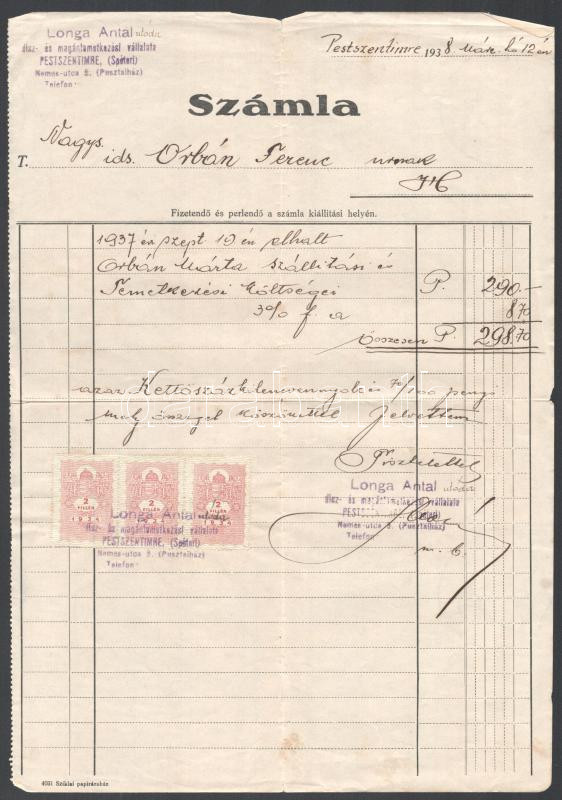 Longa Antal utóda
dísz- és magántemetkezési vállalata
PESTSZENTIMRE, (Spéteri)
Nemes-utca 9. (Pusztaiház)
Telefon
Pestszentimre, 1938 márc. hó 12 én
Számla
T. Nagys. ids. Orbán Ferenc urnak
Fizetendő és perlendő a számla kiállitási helyén.
1937 év szept 19 én elhalt
Orbán Márta szállitási és
Temetkezési költségei P. 290.—
3% f. a 8 70
összesen P. 298.70
azaz Kettőszázkilencvennyolc és 70/100 pengő
mely összeget köszönettel felvettem
Tisztelettel
Longa Antal utóda
dísz- és magántemetkezési vállalata
Nemes-utca 9. (Pusztaiház)
Telefon
2 FILLÉR
2 FILLÉR
2
Longa Antal utóda
dísz- és magántemetkezési vállalata
PESTSZENTIMRE, (Spéteri)
Nemes-utca 9. (Pusztaiház)
Telefon
4031 Sziklai papíráruház